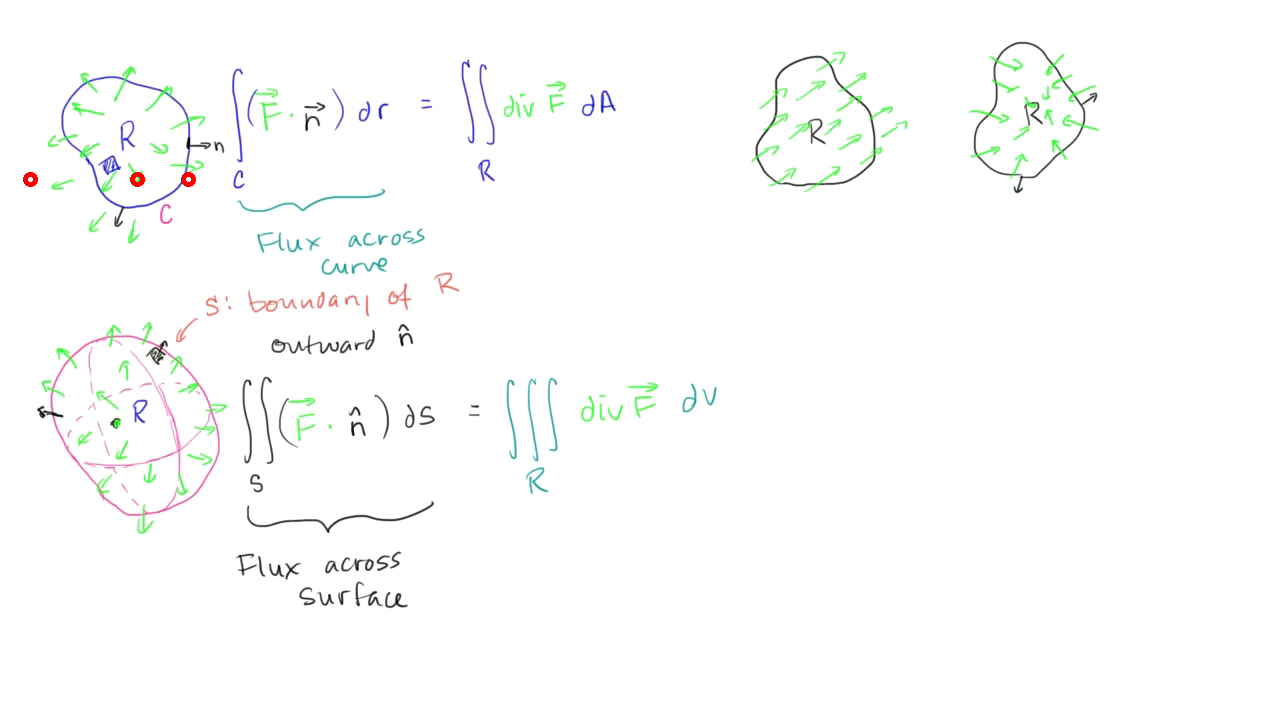 R
n
C
∫ (F⃗ · n⃗) dr = ∬ div F⃗ dA
C R
Flux across
curve
R
R
S: boundary of R
outward n̂
R
∬ (F⃗ · n̂) dS = ∭ div F⃗ dV
S R
Flux across
surface